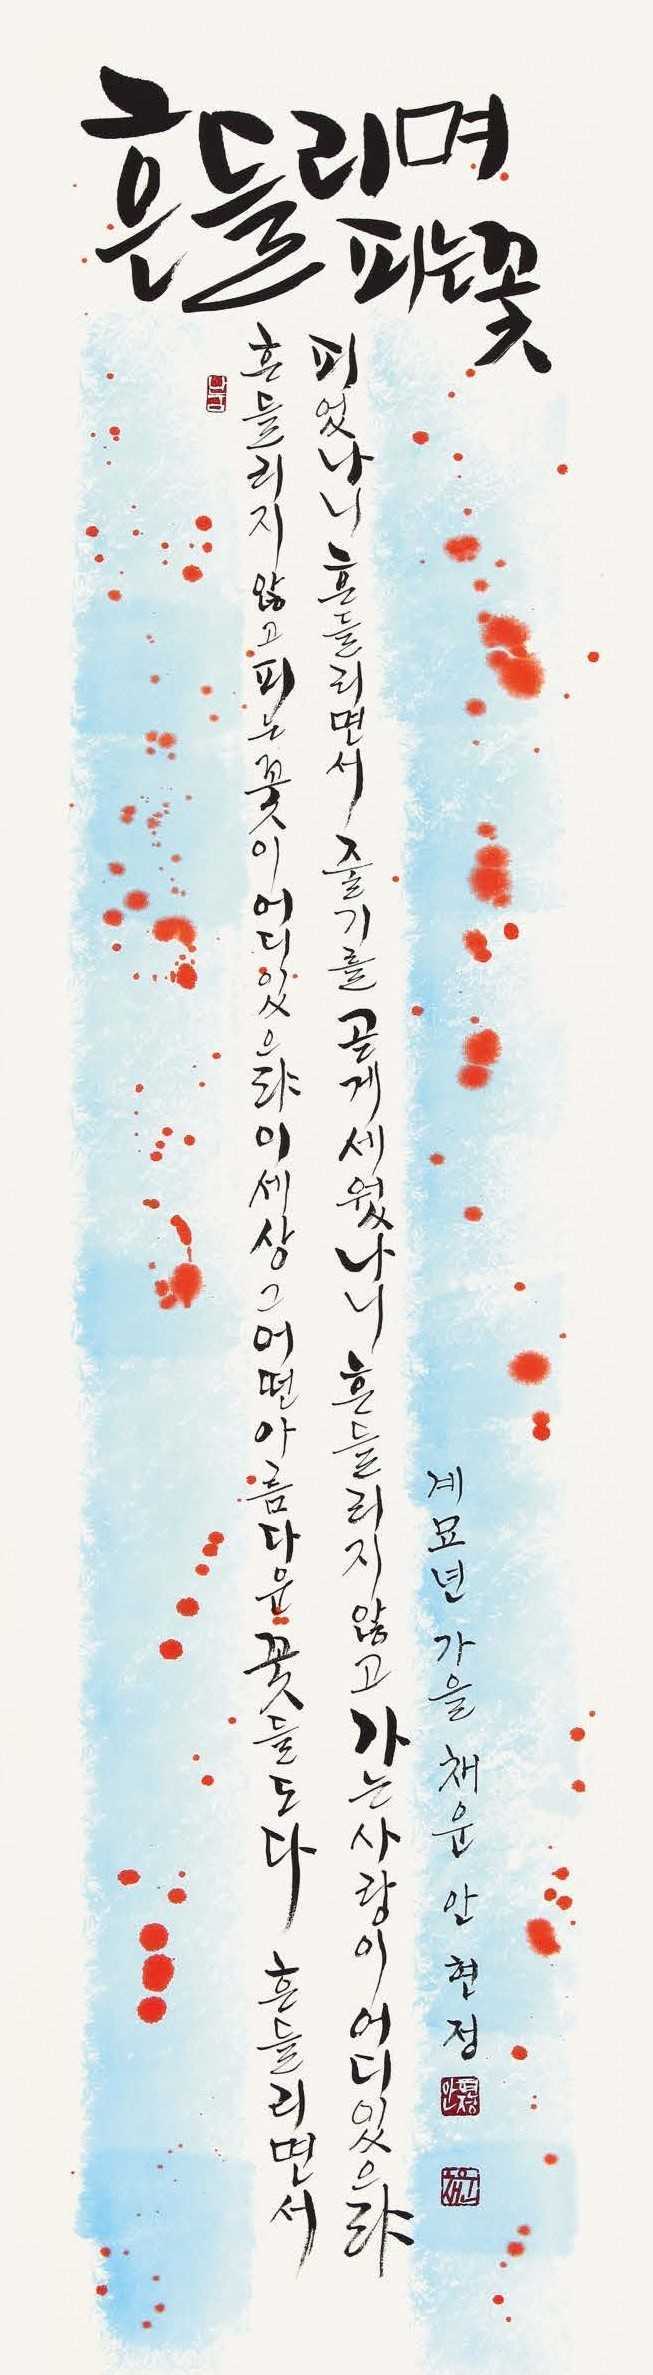 흔들리며
피는 꽃
흔들리지 않고 피는 꽃이 어디 있으랴 이 세상 그 어떤 아름다운 꽃들도 다 흔들리면서
피었나니 흔들리면서 줄기를 곧게 세웠나니 흔들리지 않고 가는 사랑이 어디 있으랴
계묘년 가을 채운 안현정